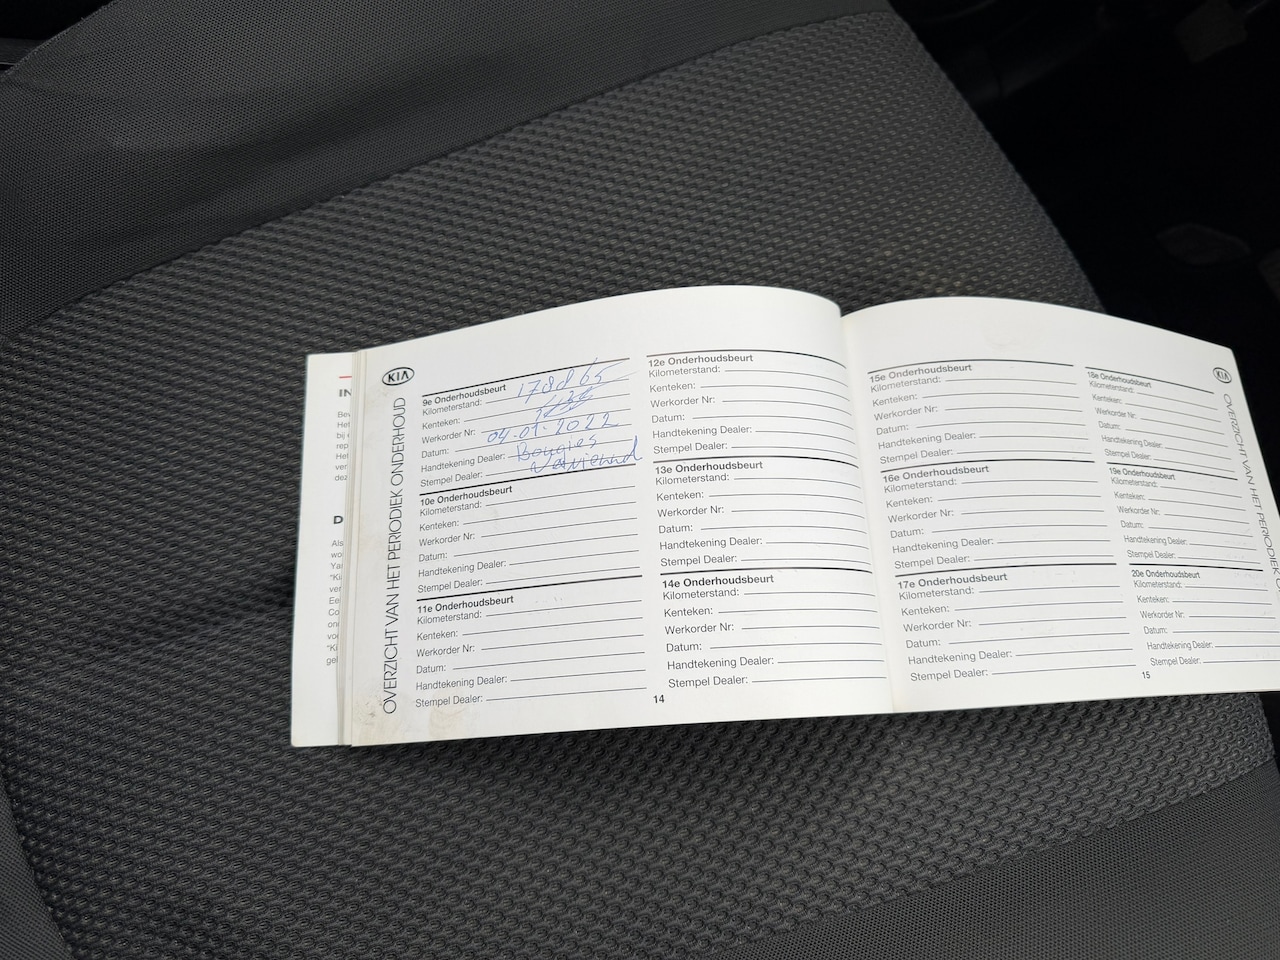 KIA
OVERZICHT VAN HET PERIODIEK ONDERHOUD
9e Onderhoudsbeurt
Kilometerstand:
Kenteken:
Werkorder Nr:
Datum: 04-07-2022
Handtekening Dealer: Bougies
Stempel Dealer:
10e Onderhoudsbeurt
Kilometerstand:
Kenteken:
Werkorder Nr:
Datum:
Handtekening Dealer:
Stempel Dealer:
11e Onderhoudsbeurt
Kilometerstand:
Kenteken:
Werkorder Nr:
Datum:
Handtekening Dealer:
Stempel Dealer:
12e Onderhoudsbeurt
Kilometerstand:
Kenteken:
Werkorder Nr:
Datum:
Handtekening Dealer:
Stempel Dealer:
13e Onderhoudsbeurt
Kilometerstand:
Kenteken:
Werkorder Nr:
Datum:
Handtekening Dealer:
Stempel Dealer:
14e Onderhoudsbeurt
Kilometerstand:
Kenteken:
Werkorder Nr:
Datum:
Handtekening Dealer:
Stempel Dealer:
14
15e Onderhoudsbeurt
Kilometerstand:
Kenteken:
Werkorder Nr:
Datum:
Handtekening Dealer:
Stempel Dealer:
16e Onderhoudsbeurt
Kilometerstand:
Kenteken:
Werkorder Nr:
Datum:
Handtekening Dealer:
Stempel Dealer:
17e Onderhoudsbeurt
Kilometerstand:
Kenteken:
Werkorder Nr:
Datum:
Handtekening Dealer:
Stempel Dealer:
18e Onderhoudsbeurt
Kilometerstand:
Kenteken:
Werkorder Nr:
Datum:
Handtekening Dealer:
Stempel Dealer:
19e Onderhoudsbeurt
Kilometerstand:
Kenteken:
Werkorder Nr:
Datum:
Handtekening Dealer:
Stempel Dealer:
20e Onderhoudsbeurt
Kilometerstand:
Kenteken:
Werkorder Nr:
Datum:
Handtekening Dealer:
Stempel Dealer:
15
KIA
OVERZICHT VAN HET PERIODIEK